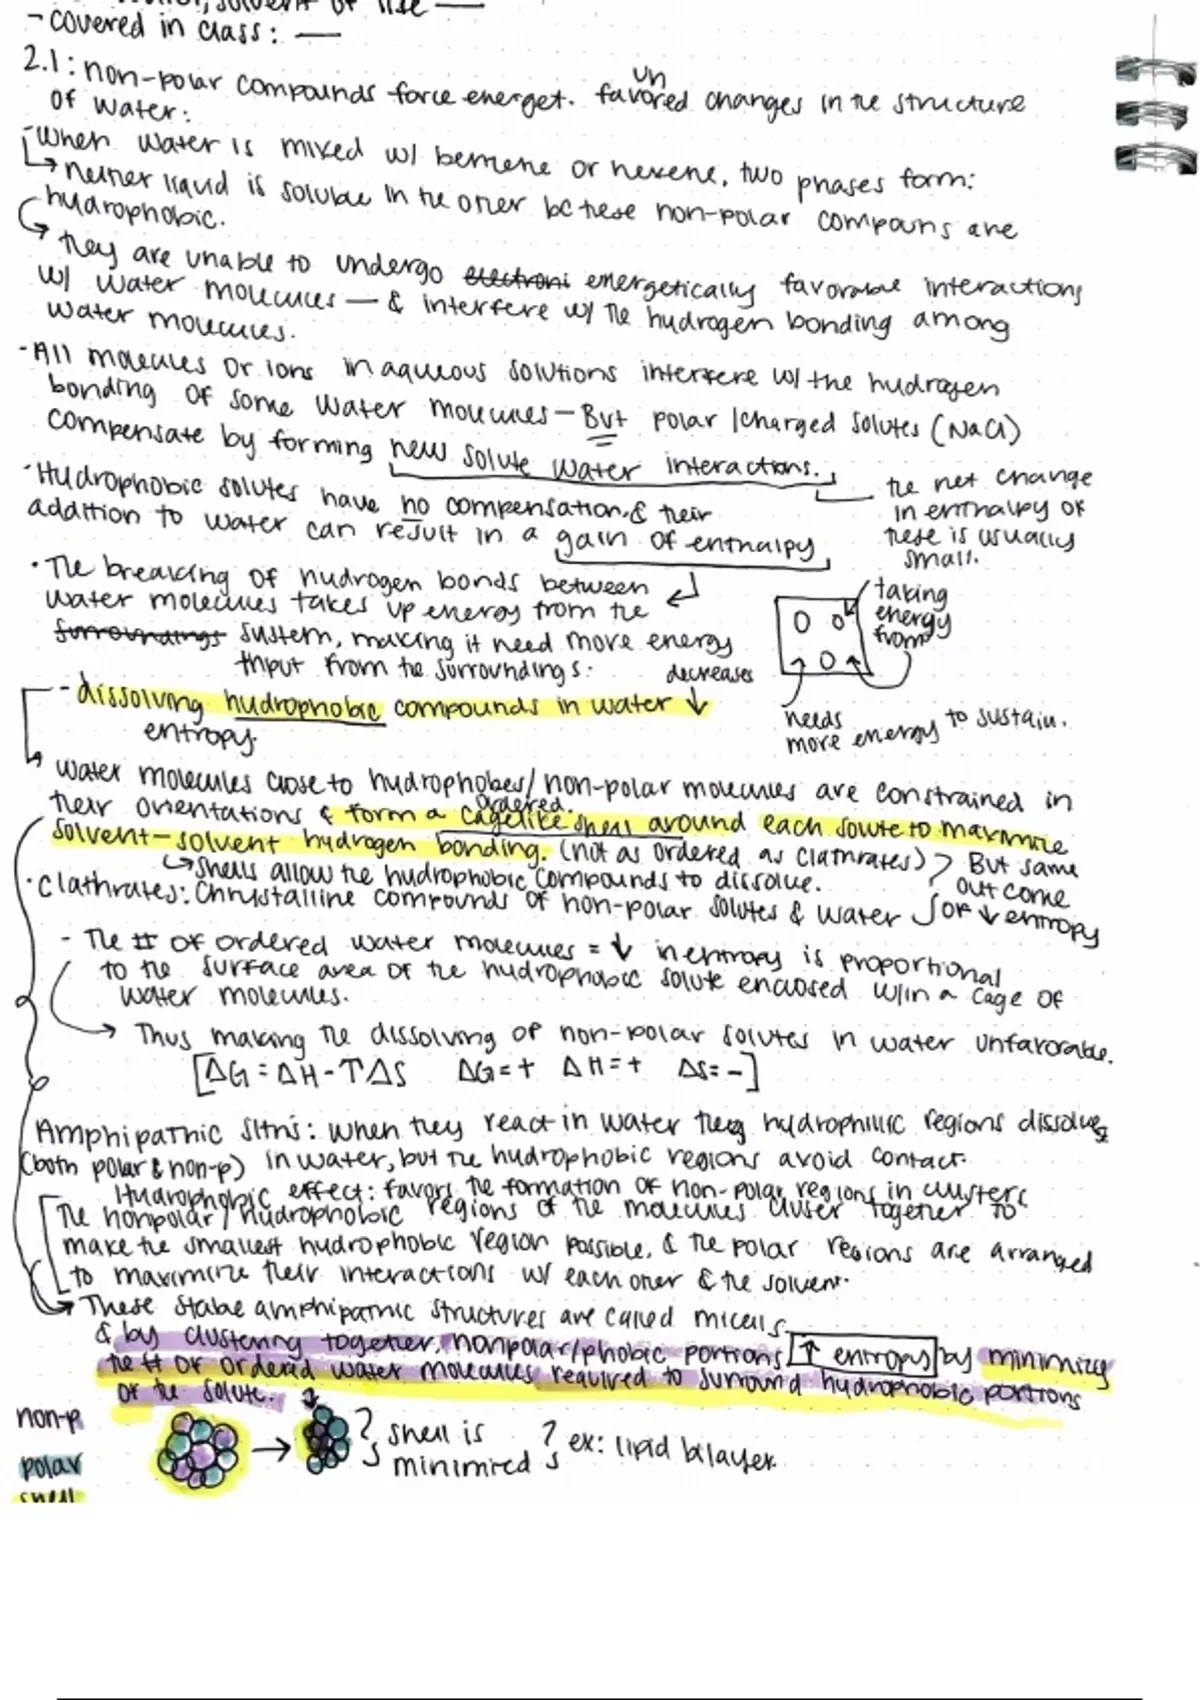 solvent of life —
- covered in class: —
2.1: non-polar compounds force energet. unfavored changes in the structure
of water:
- When water is mixed w/ benzene or hexene, two phases form:
↳ neither liquid is soluble in the other bc these non-polar compouns are
hydrophobic.
↳ they are unable to undergo electroni energetically favorable interactions
w/ water molecules — & interfere w/ the hydrogen bonding among
water molecules.
- All molecules or ions in aqueous solutions interfere w/ the hydrogen
bonding of some water molecules — But polar /charged solutes (NaCl)
compensate by forming new solute water interactions.
the net change
in enthalpy of
these is usually
small.
· Hydrophobic solutes have no compensation, & their
addition to water can result in a gain of enthalpy
· The breaking of hydrogen bonds between
water molecules takes up energy from the
surroundings system, making it need more energy
input from the surroundings.
taking
energy
from
needs
more energy to sustain.
decreases
- dissolving hydrophobic compounds in water ↓
entropy.
↳ water molecules close to hydrophobes/non-polar molecules are constrained in
their orientations & form a cagelike ordered shell around each solute to maximize
solvent-solvent hydrogen bonding. (not as ordered as clathrates)
↳ shells allow the hydrophobic compounds to dissolve.
But same
outcome
of ↓ entropy
· Clathrates: Chrystalline compounds of non-polar solutes & water
- The # of ordered water molecules = ↓ in entropy is proportional
to the surface area of the hydrophobic solute enclosed w/in a cage of
water molecules.
→ Thus making the dissolving of non-polar solutes in water unfavorable.
[ΔG = ΔH - TΔS ΔG = + ΔH = + ΔS = -]
Amphipathic sltns: when they react in water they hydrophilic regions dissolves
(both polar & non-p) in water, but the hydrophobic regions avoid contact.
Hydrophobic effect: favors the formation of non-polar regions in clusters
The nonpolar/hydrophobic regions of the molecules cluser together to
make the smallest hydrophobic region possible, & the polar regions are arranged
to maximize their interactions w/ each other & the solvent.
→ These stable amphipathic structures are called micells
& by clustering together, nonpolar/phobic portions ↑ entropy by minimizing
the # of ordered water molecules required to surround hydrophobic portions
of the solute.
non-p
polar
shell
→
shell is
minimized
ex: lipid bilayer.